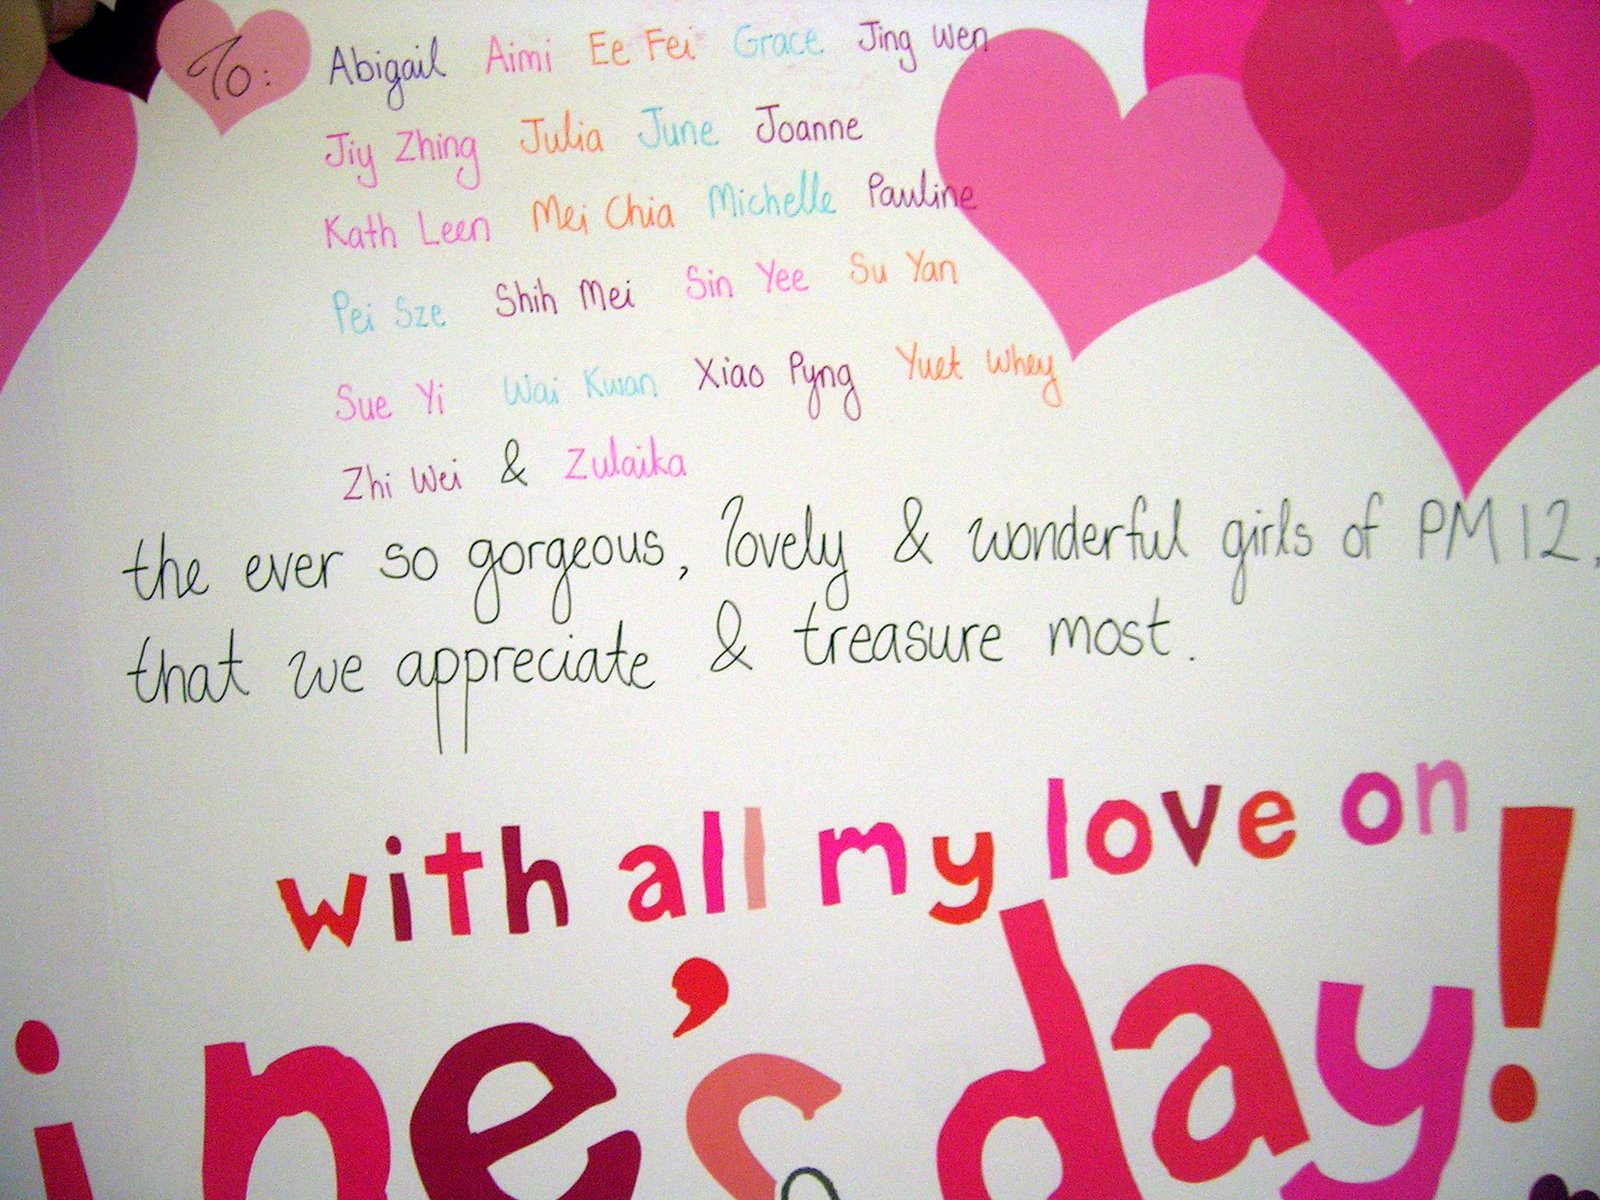 To: Abigail Aimi Ee Fei Grace Jing Wen
Jiy Zhing Julia June Joanne
Kath Leen Mei Chia Michelle Pauline
Pei Sze Shih Mei Sin Yee Su Yan
Sue Yi Wai Kwan Xiao Pyng Yuet Whey
Zhi Wei & Zulaika
the ever so gorgeous, lovely & wonderful girls of PM12,
that we appreciate & treasure most.
with all my love on
ine's day!